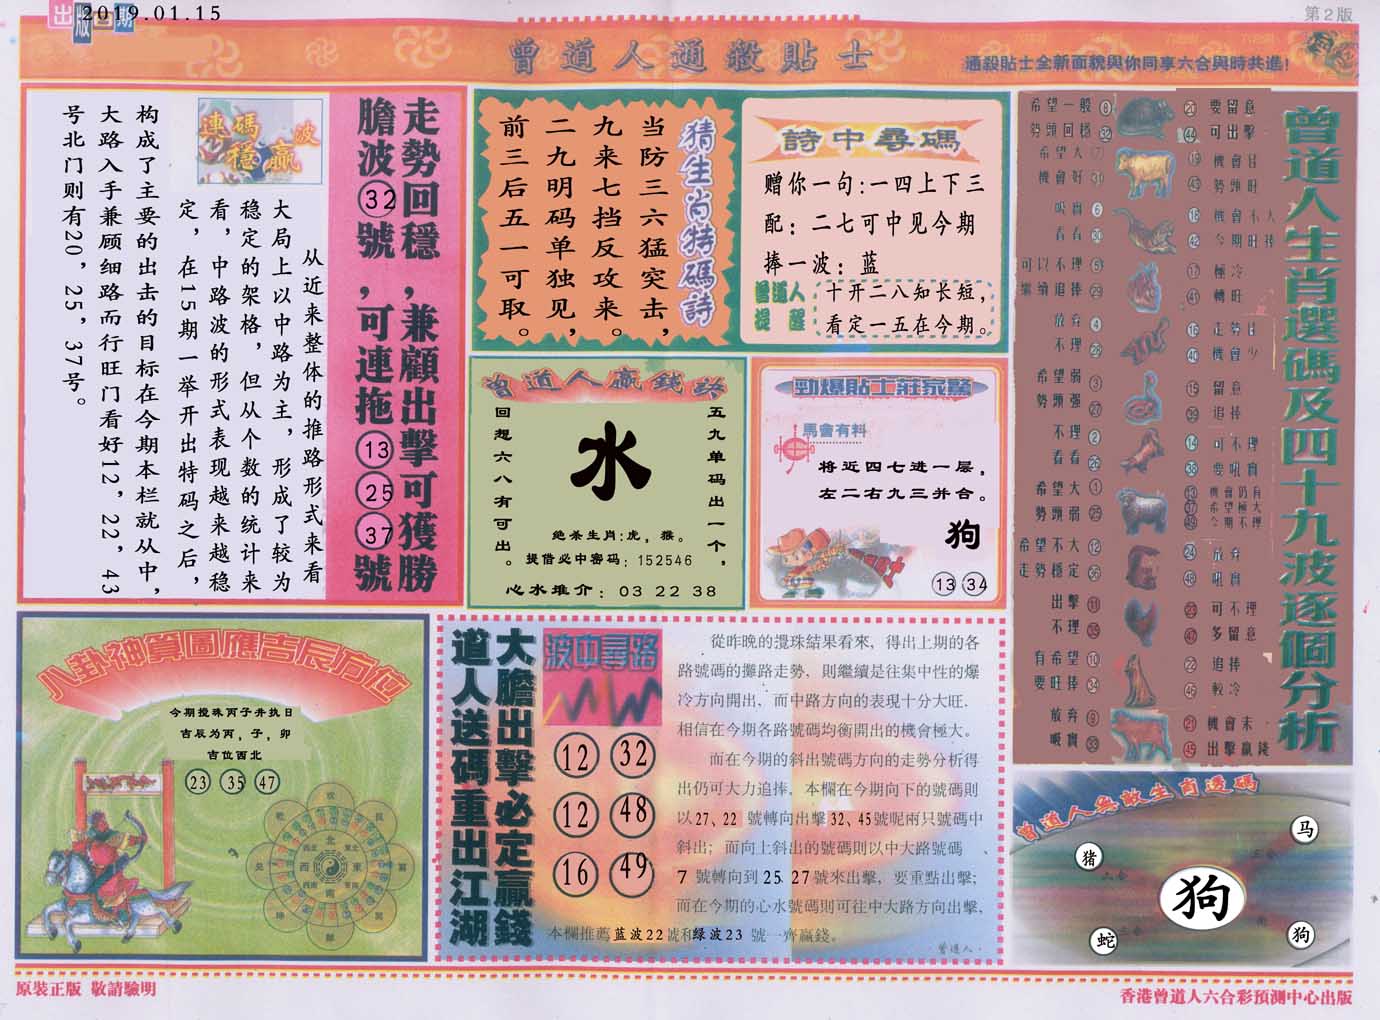 2019.01.15
出版日期
第2版
曾道人通殺貼士
通殺貼士全新面貌與你同享六合與時共進!
走勢回穩,兼顧出擊可獲勝
膽波32號,可連拖132537號
連碼波
穩贏
从近来整体的推路形式来看
大局上以中路为主,形成了较为
稳定的架格,但从个数的统计来
看,中路波的形式表现越来越稳
定,在15期一举开出特码之后,
构成了主要的出击的目标在今期本栏就从中,
大路入手兼顾细路而行旺门看好12,22,43
号北门则有20,25,37号。
猜生肖特碼詩
当防三六猛突击,
九来七挡反攻来。
二九明码单独见,
前三后五一可取。
詩中尋碼
赠你一句:一四上下三
配:二七可中见今期
捧一波:蓝
曾道人
提醒
十开二八知长短,
看定一五在今期。
曾道人贏錢詩
五九单码出一个,
回想六八有可出。
水
绝杀生肖:虎,猴。
提借必中密码:152546
心水推介:03 22 38
勁爆貼士莊家驚
馬會有料
将近四七进一层,
左二右九三并合。
狗
13 34
曾道人生肖選碼及四十九波逐個分析
希望一般 8
勢頭回穩 32
希望大 7
機會好 31
吸實 6
看看 30
可以不理 5
繼續追捧 29
放弃 4
不理 28
希望弱 3
勢頭强 27
不理 2
看看 26
希望大 1
勢頭弱 25
希望不大 12
走勢穩定 36
出擊 11
不理 35
有希望 10
要旺捧 34
放弃 9
吸實 33
20 要留意
44 可出擊
19 機會佳
43 勢頭旺
18 機會不大
42 今期旺捧
17 極冷
41 轉旺
16 走勢佳
40 機會少
15 留意
39 追捧
14 可不理
38 要吼實
13 機會仍有
37 希望極大
49 今期不理
24 放弃
48 吼實
23 可不理
47 多留意
22 追捧
46 較冷
21 機會未
45 出擊贏錢
八卦神算圖應吉辰方位
今期搅珠丙子井执日
吉辰为丙,子,卯
吉位西北
23 35 47
大膽出擊必定贏錢
道人送碼重出江湖
波中尋路
12 32
12 48
16 49
從昨晚的攪珠結果看來,得出上期的各
路號碼的攤路走勢,則繼續是往集中性的爆
冷方向開出,而中路方向的表現十分大旺.
相信在今期各路號碼均衡開出的機會極大。
而在今期的斜出號碼方向的走勢分析得
出仍可大力追捧,本欄在今期向下的號碼則
以27、22 號轉向出擊32、45號呢兩只號碼中
斜出;而向上斜出的號碼則以中大路號碼、
7 號轉向到25 27號來出擊,要重點出擊;
而在今期的心水號碼則可往中大路方向出擊,
本欄推薦蓝波22號和绿波23 號一齊贏錢。
曾道人·
曾道人無敵生肖透碼
猪
马
狗
蛇
狗
原裝正版 敬請驗明
香港曾道人六合彩預測中心出版